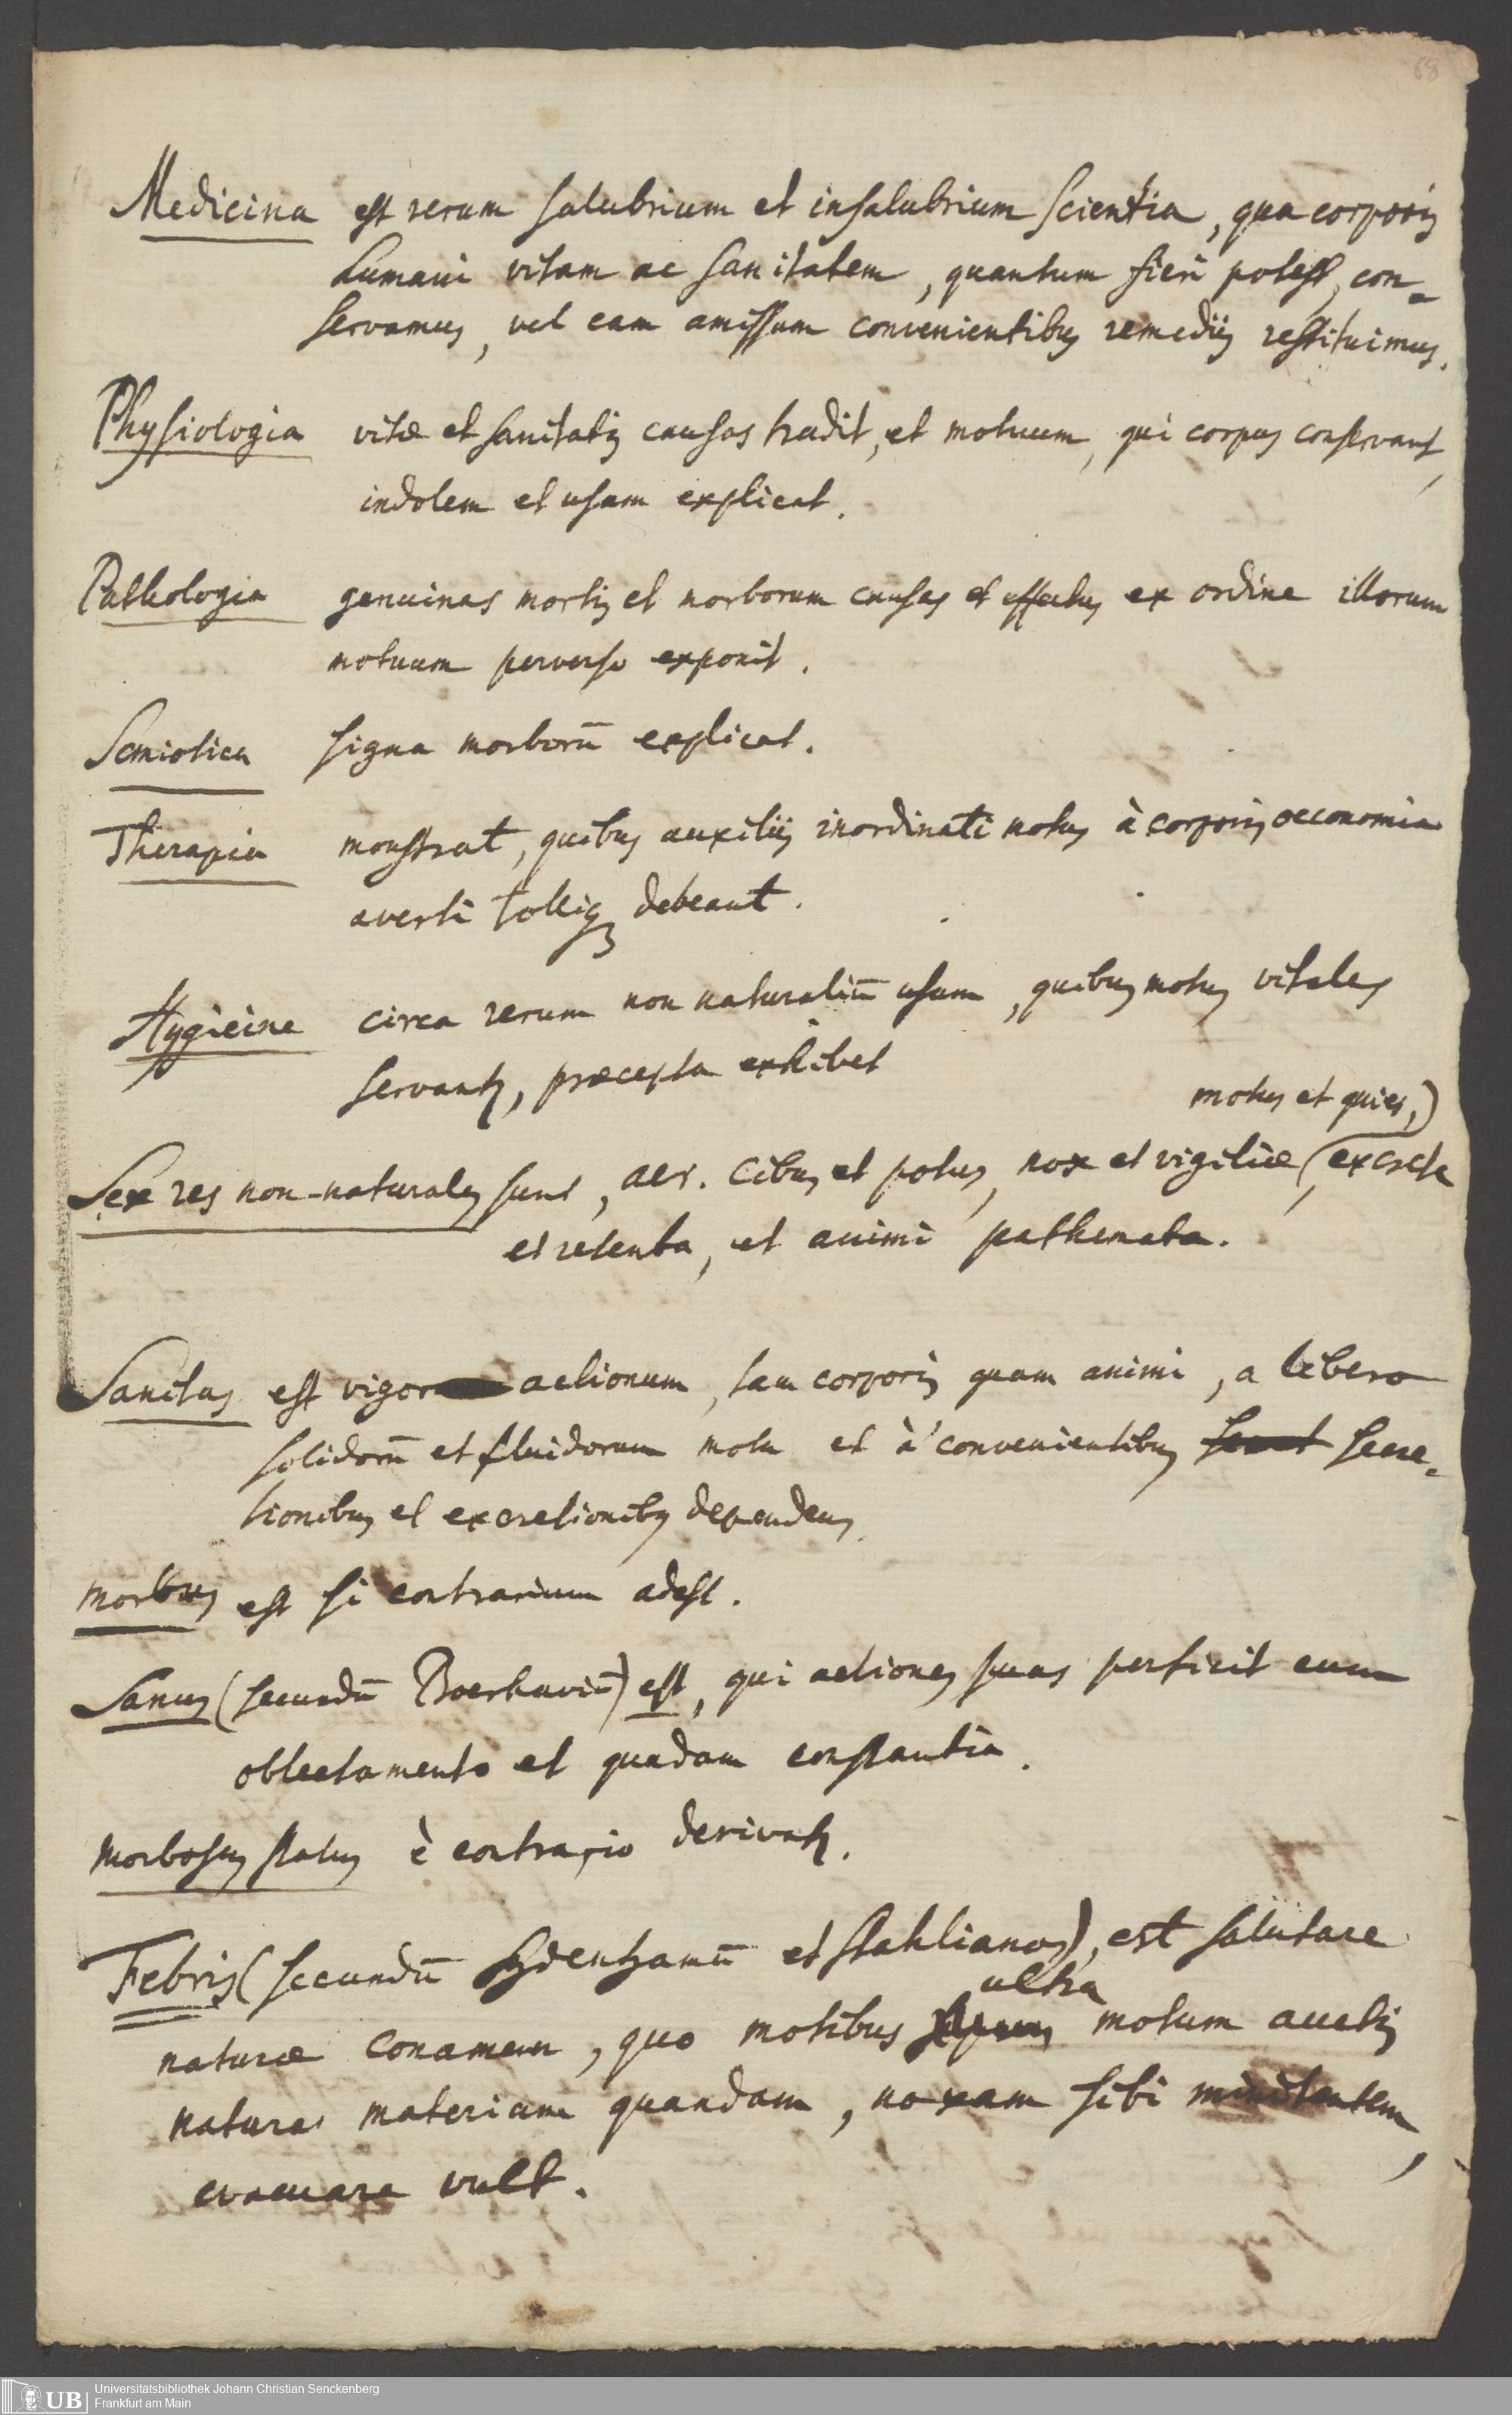 68
Medicina est rerum salubrium et insalubrium scientia, qua corporis
humani vitam ac sanitatem, quantum fieri potest, con-
servamus, vel eam amissam convenientibus remediis restituimus.
Physiologia vitæ et sanitatis causas tradit, et motuum, qui corpus conservant,
indolem et usum explicat.
Pathologia genuinas mortis et morborum causas et effectus ex ordine illorum
motuum perverso exponit.
Semiotica signa morborū explicat.
Therapia monstrat, quibus auxiliis inordinati motus à corporis oeconomia
averti tolliq₃ debeant.
Hygieine circa rerum non naturaliū usum, quibus motus vitales
servantr, præcepta exhibet
motus et quies,)
Sex res non-naturales sunt, aer. cibus et potus, nox et vigiliæ, (excreta
et retenta, et animi pathemata.
Sanitas est vigor actionum, tam corporis quam animi, a libero
solidorū et fluidorum motu et à convenientibus secre-
tionibus et excretionibus dependens.
morbus est si contrarium adest.
Sanus (secundū Boerhaviū) est, qui actiones suas perficit cum
oblectamento et quadam constantia.
Morbosus status è contrario derivatr.
Febris (secundū Sydenhamū et Stahlianos), est salutare
ultra
naturæ conamen, quo motibus motum auctis
natura materiam quandam, noxam sibi minitantem,
evacuare vult.
UB Universitätsbibliothek Johann Christian Senckenberg
Frankfurt am Main